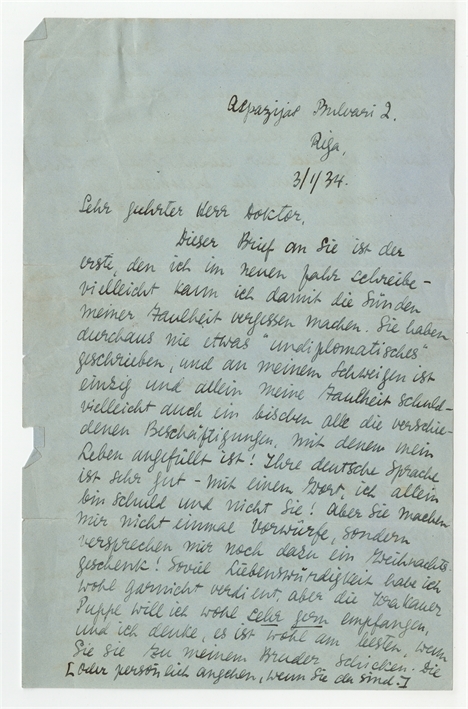 Aspazijas Bulvari 2.
Riga,
3/1/34.
Sehr geehrter Herr Doktor,
Dieser Brief an Sie ist der
erste, den ich im neuen Jahr schreibe –
vielleicht kann ich damit die Sünden
meiner Faulheit vergessen machen. Sie haben
durchaus nie etwas "undiplomatisches"
geschrieben, und an meinem Schweigen ist
einzig und allein meine Faulheit schuld –
vielleicht auch ein bischen alle die verschie-
denen Beschäftigungen, mit denen mein
Leben angefüllt ist! Ihre deutsche Sprache
ist sehr gut – mit einem Wort, ich allein
bin schuld und nicht Sie! Aber Sie machen
mir nicht einmal Vorwürfe, sondern
versprechen mir noch dazu ein Weihnachts-
geschenk! Soviel Liebenswürdigkeit habe ich
wohl garnicht verdient, aber die Krakauer
Puppe will ich wohl sehr gern empfangen,
und ich denke, es ist wohl am besten, wenn
Sie sie zu meinem Bruder schicken. Die
[oder persönlich angehen, wenn Sie da sind.]